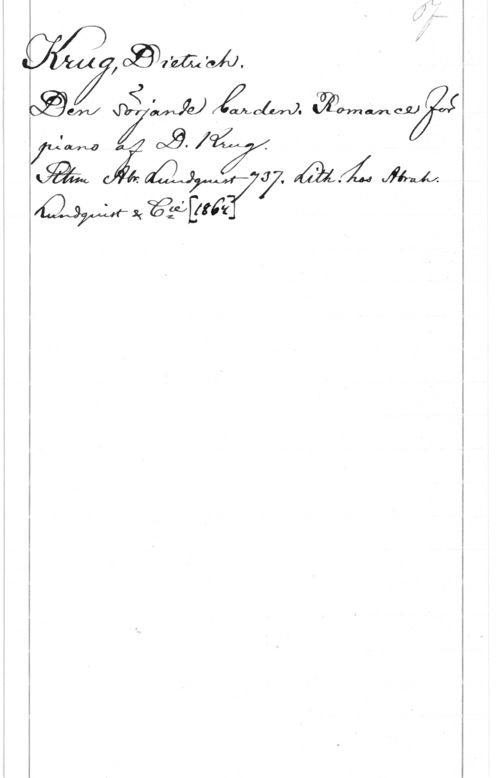 Krug, Dietrich.
Den sörjande barden. Romance för
piano af D. Krug.
Sthm Abr. Lundquist 737. Lith. hos Abrah.
Lundquist & C<u>ie</u> [1864]